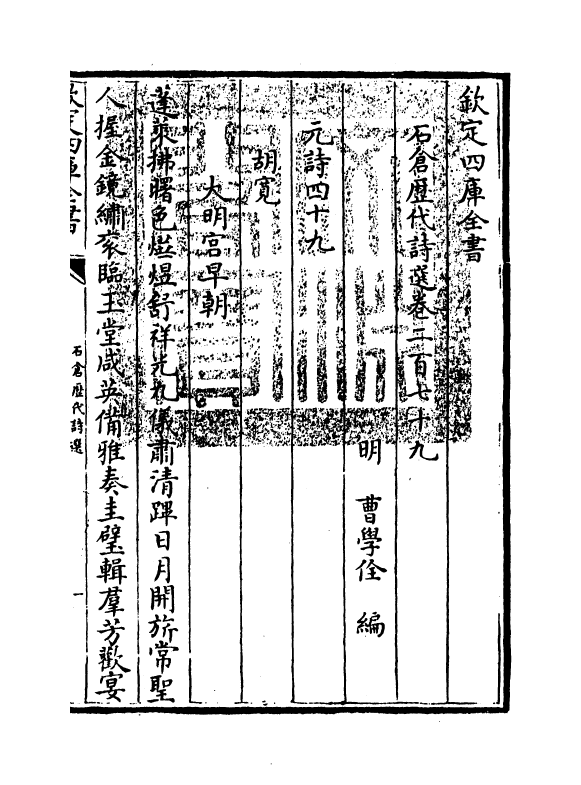 欽定四庫全書
石倉歴代詩選卷二百七十九
明 曹學佺 編
元詩四十九
胡寛
大明宫早朝
蓬萊拂曙色熾煴舒祥光九儀肅清蹕日月開旂常聖
人握金鏡繡衮臨玉堂咸英備雅奏圭璧輯羣芳歡宴
欽定四庫全書
石倉歴代詩選
一